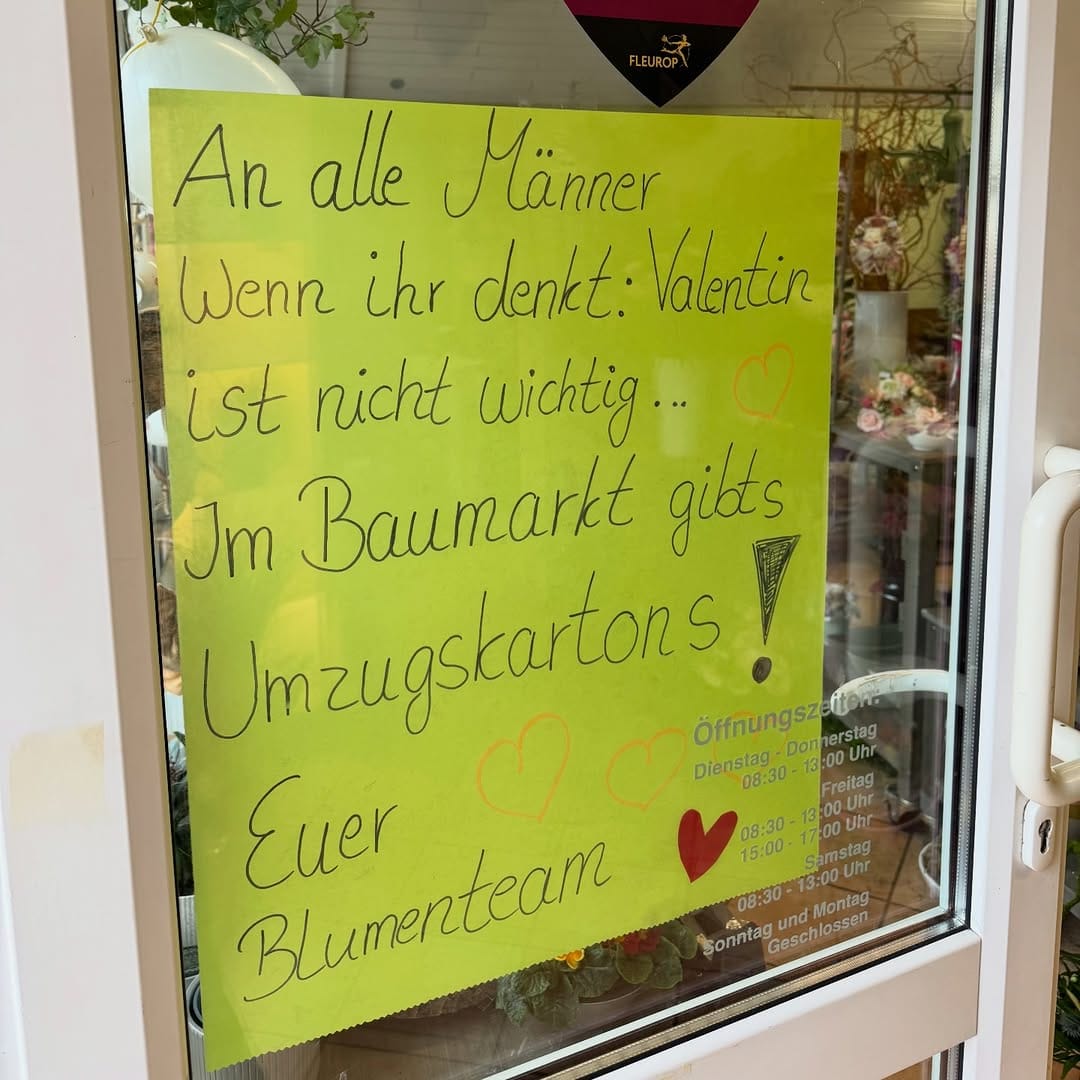 FLEUROP
An alle Männer
Wenn ihr denkt: Valentin
ist nicht wichtig...
Im Baumarkt gibts
Umzugskartons!
Euer
Blumenteam
Öffnungszeiten:
Dienstag - Donnerstag
08:30 - 13:00 Uhr
Freitag
08:30 - 13:00 Uhr
15:00 - 17:00 Uhr
Samstag
08:30 - 13:00 Uhr
Sonntag und Montag
Geschlossen